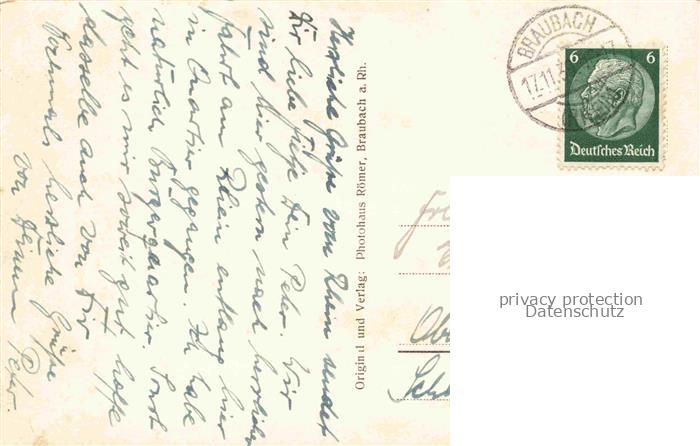 Herzliche Grüße vom Rhein sendet
Dir liebe Dein Peter. Wir
sind hier gestern nach herrlicher
fahrt am Rhein entlang hier
in Quartier gegangen. Ich habe
natürlich Bürgerquartier. Sonst
geht es mir soweit gut hoffe
dasselbe auch von Dir
Nochmals herzliche Grüße
von Deinem Peter.
Original und Verlag: Photohaus Römer, Braubach a. Rh.
BRAUBACH
17.11.
6 6
Deutsches Reich
Frl
privacy protection
Datenschutz